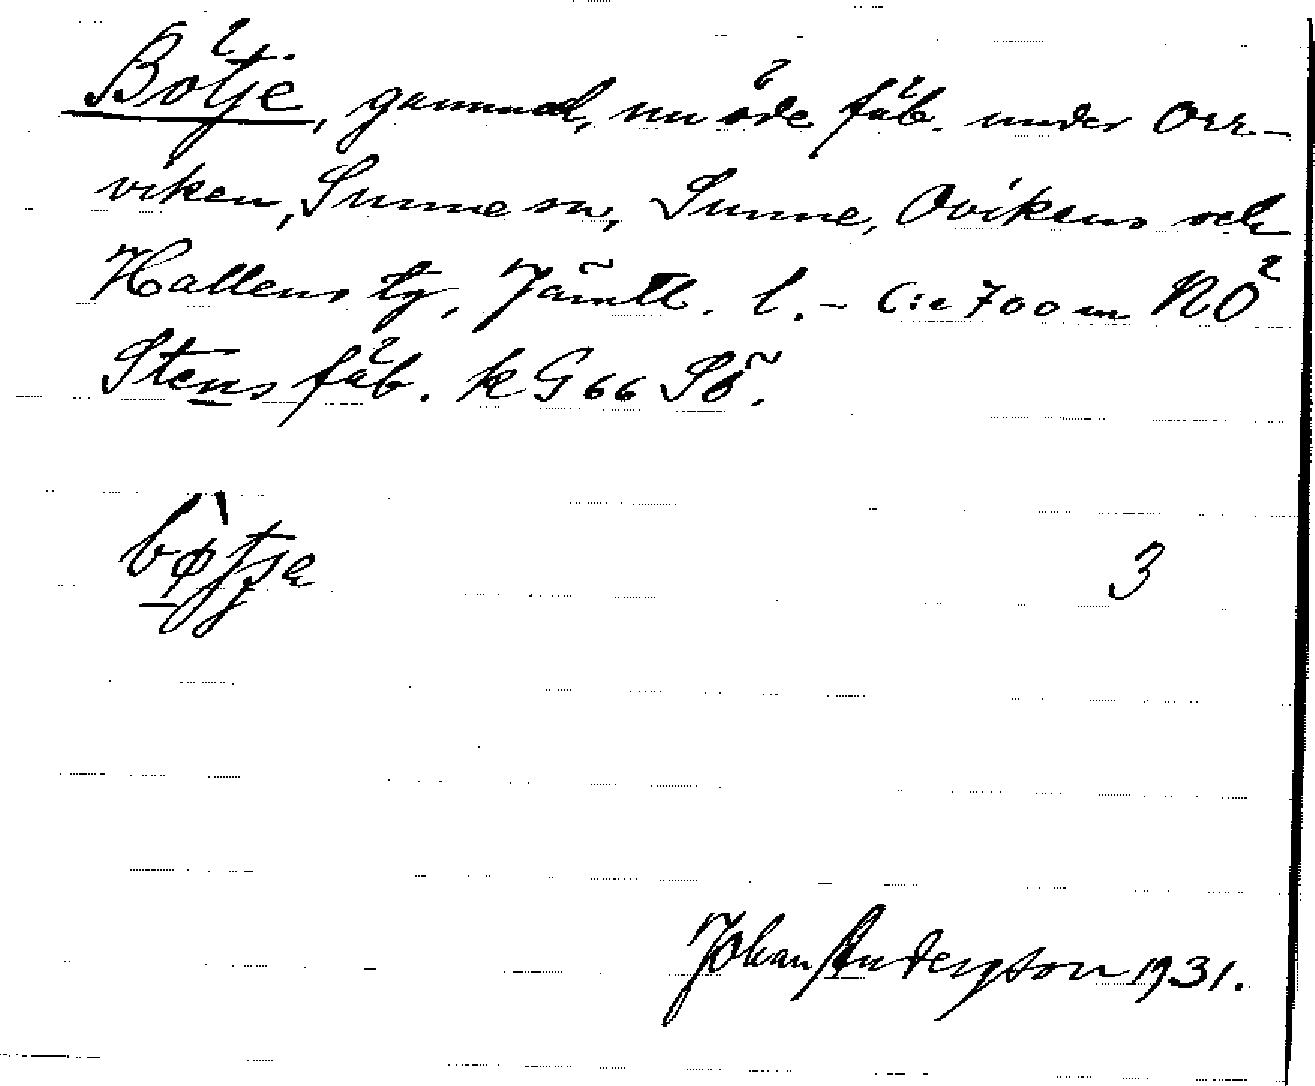 Bötje, gammal, nu öde fäb. under Orr-
viken, Sunne sn, Sunne, Ovikens och
Hallens tg, Jämtl. l. - C:a 700 m NÖ
Stens fäb. k G 66 SÖ.
3
Johan Anderson 1931.